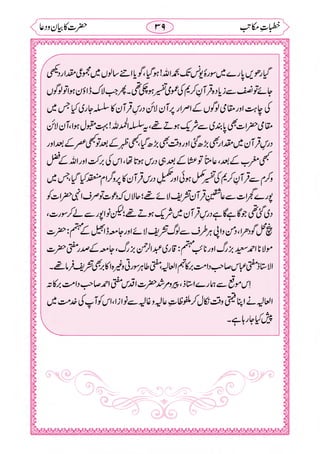 خطباتِ مکاتب ۳۹ حضرت کا بیان و دعا
گیارھویں پارے میں سورۂ یونس تک بحمد اللہ! ہوگیا، گویا اتنے سالوں میں مجموعی مقدار دیکھی
جائے تو نصف سے زیادہ قرآنِ کریم کی عمومی تفسیر ہوچکی تھی۔ پھر جب لاک ڈاؤن ہوا تو لوگوں
کی چاہت اور مقامی لوگوں کے اصرار پر آن لائن درسِ قرآن کا سلسلہ جاری کیا جس میں
مقامی حضرات بھی پابندی سے شریک ہوتے تھے، یہ سلسلہ الحمدللہ! بہت مقبول ہوا، آن لائن
درسِ قرآن میں مقدار بھی بڑھ گئی اور وقت بھی بڑھ گیا، کبھی ظہر کے بعد تو کبھی عصر کے بعد اور
کبھی مغرب کے بعد، عامتاً تو عشا کے بعد ہی درس ہوتا تھا، اس کی برکت اور اللہ کے فضل
وکرم سے قرآنِ کریم کی تفسیر مکمل ہوئی اور تکمیلِ درسِ قرآن کا پروگرام منعقد کیا گیا جس میں
پورے گجرات سے عاشقینِ قرآن تشریف لائے تھے؛ حالاں کہ دعوت تو صرف انہی حضرات کو
دی گئی تھی جو گاہے گاہے درسِ قرآن میں شریک ہوتے تھے؛ لیکن نواپور سے لے کر سورت،
پنچ محل گودھرا، دمن واپی ہر طرف سے لوگ تشریف لائے اور جامعہ ڈابھیل کے مہتمم: حضرت
مولانا احمد سعید بزرگ اور نائب مہتمم: قاری عبدالرحمٰن بزرگ، جامعہ کے صدر مفتی حضرت
الاستاذ مفتی عباس صاحب دامت برکاتہم العالیہ، مفتی طاہر سورتی وغیرہ اکابر بھی تشریف فرما تھے۔
اِس موقع سے ہمارے استاذ، پیر ومرشد حضرت اقدس مفتی احمد صاحب دامت برکاتہ
العالیہ نے اپنا قیمتی وقت نکال کر ملفوظاتِ عالیہ و غالیہ سے نوازا، اس کو آپ کی خدمت میں
پیش کیا جارہا ہے۔